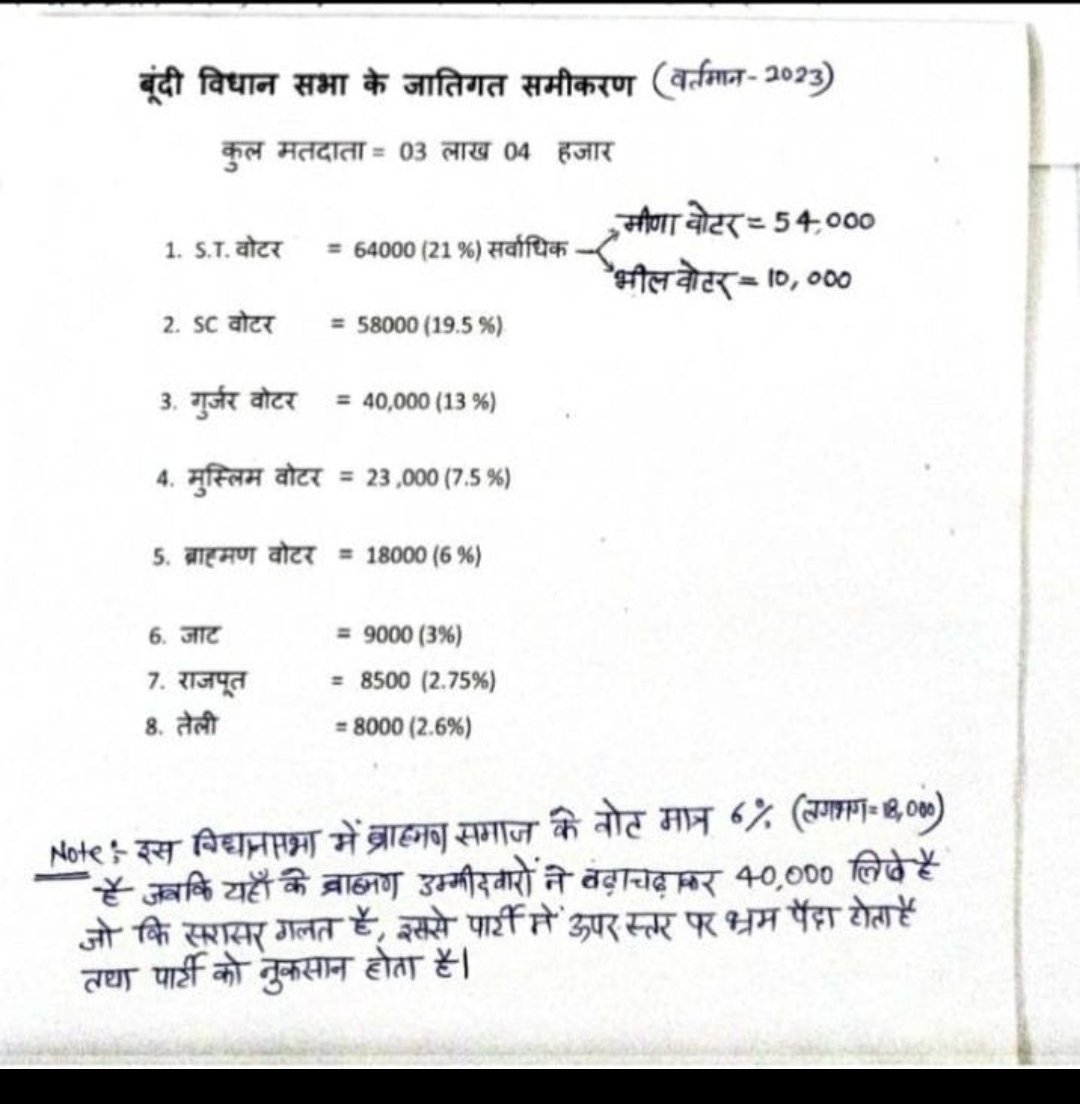 बूंदी विधान सभा के जातिगत समीकरण (वर्तमान- 2023)
कुल मतदाता = 03 लाख 04 हजार
मीणा वोटर = 54,000
1. S.T. वोटर = 64000 (21 %) सर्वाधिक
भील वोटर = 10,000
2. SC वोटर = 58000 (19.5 %)
3. गुर्जर वोटर = 40,000 (13 %)
4. मुस्लिम वोटर = 23 ,000 (7.5 %)
5. ब्राहमण वोटर = 18000 (6 %)
6. जाट = 9000 (3%)
7. राजपूत = 8500 (2.75%)
8. तेली = 8000 (2.6%)
Note:- इस विधानसभा में ब्राहमण समाज के वोट मात्र 6% (लगभग= 18,000)
है जबकि यहाँ के ब्राहमण उम्मीदवारों ने बढ़ाचढ़ाकर 40,000 लिखे है
जो कि सरासर गलत है, इससे पार्टी में ऊपर स्तर पर भ्रम पैदा होता है
तथा पार्टी को नुकसान होता है।